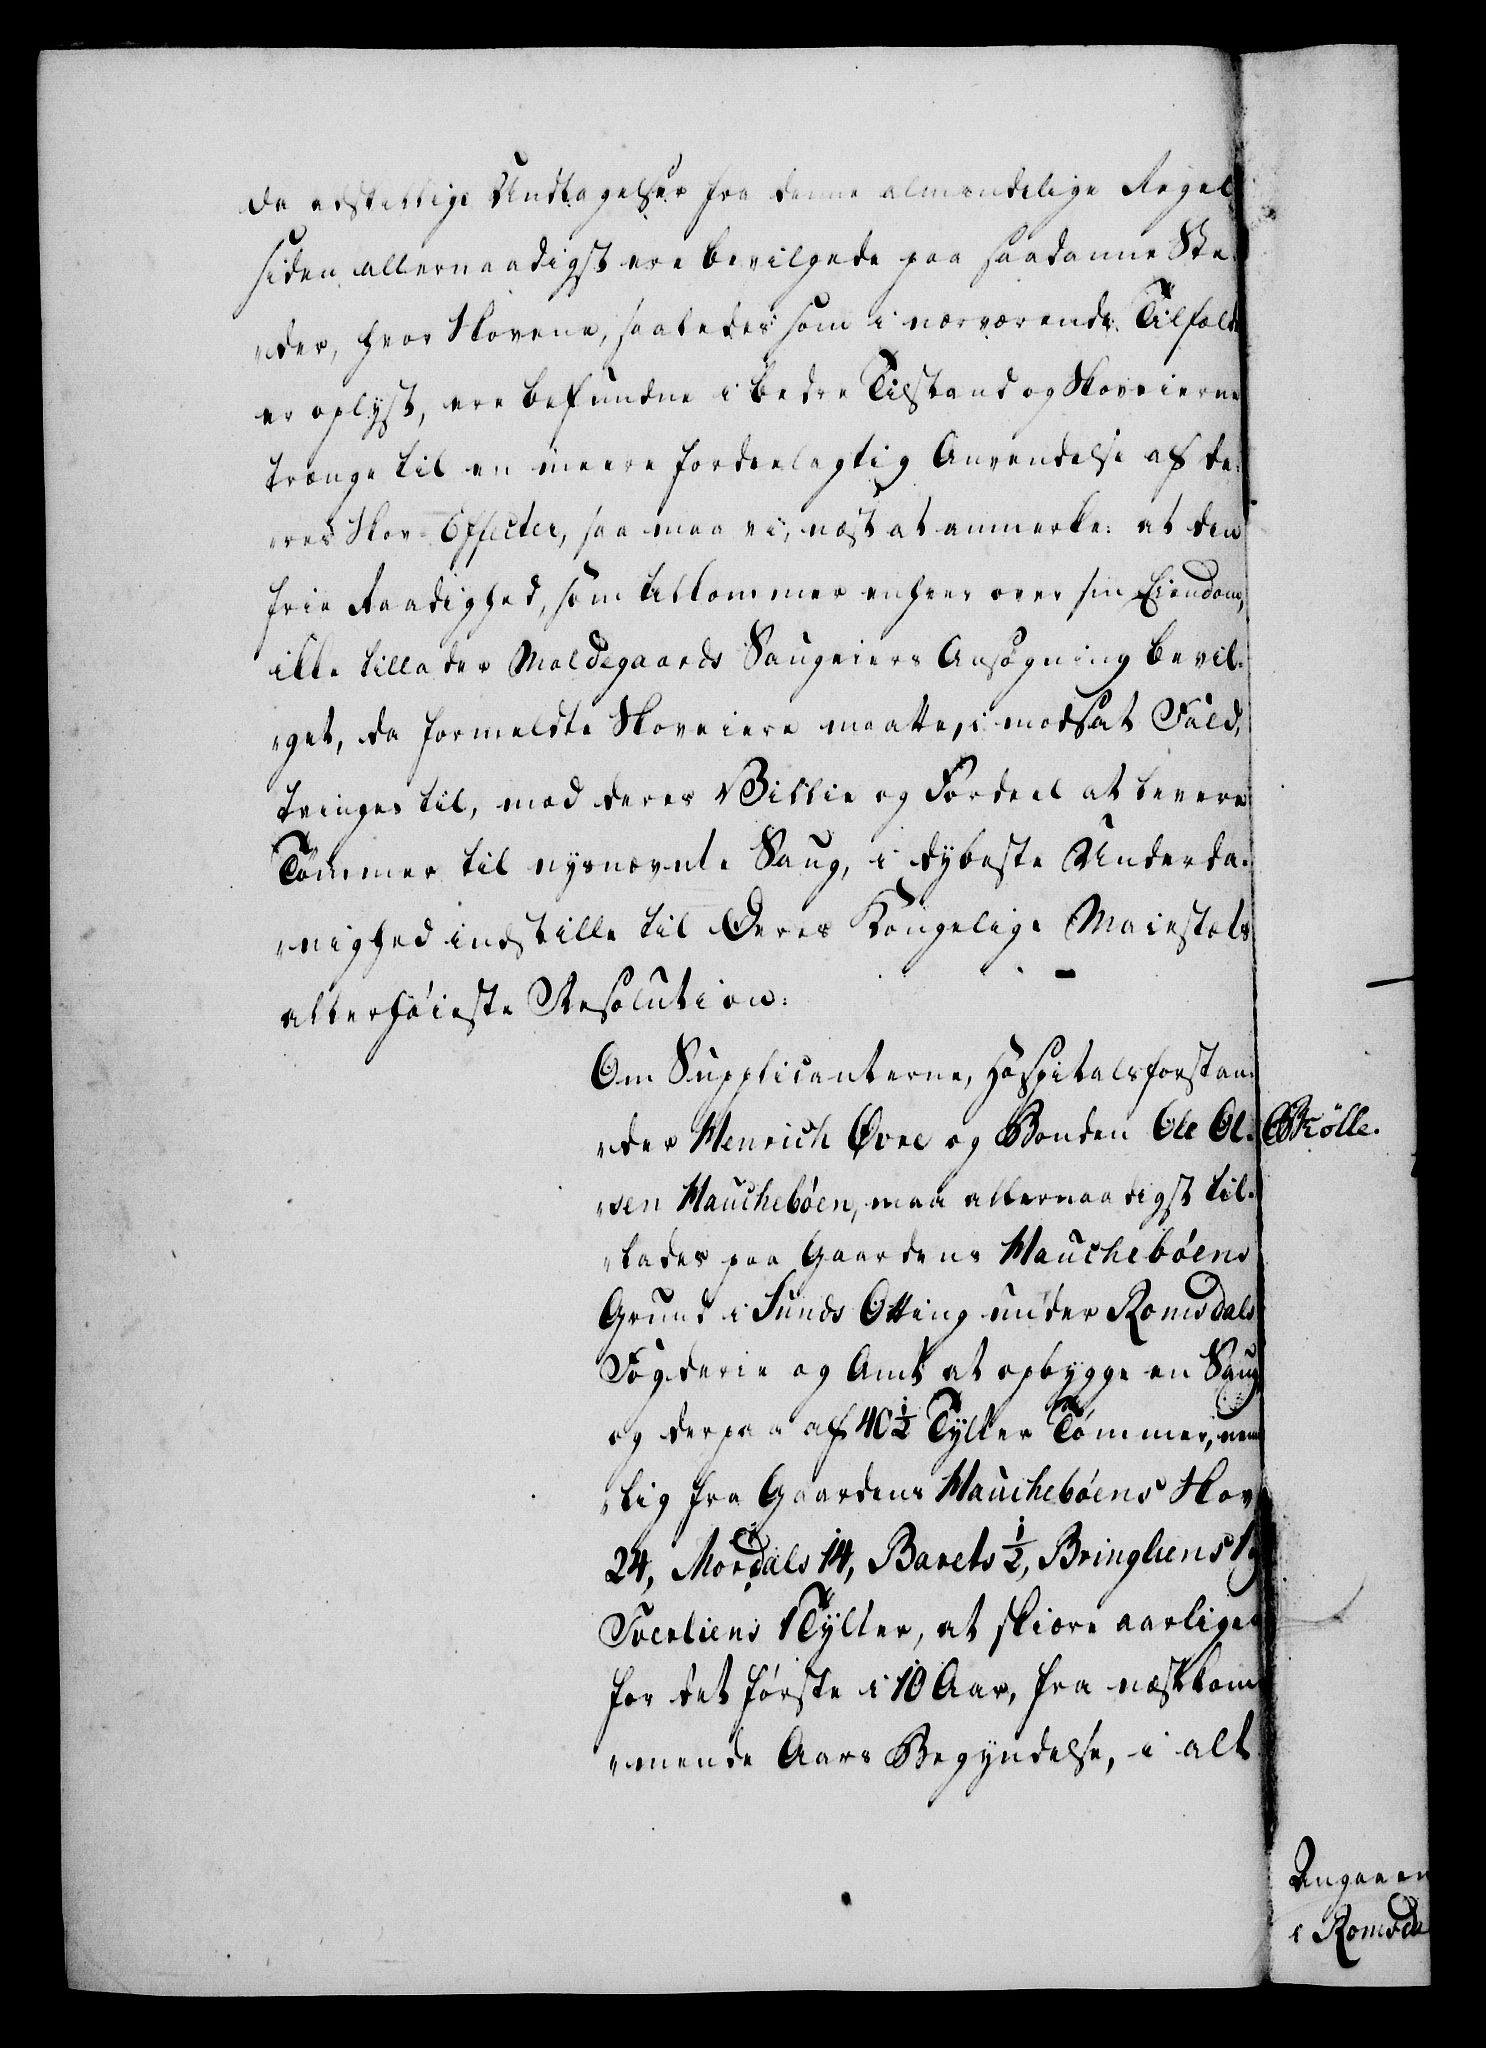 da adskillige Undtagelser fra denne almindelige Regel
siden allernaadigst ere bevilgede paa saadanne Ste-
„der, hvor Skovene, saaledes som i nærværende Tilfælde
er oplyst, ere befundne i bedre Tilstand og Skoveierne
trænge til en meere fordeelagtig Anvendelse af de-
„res Skov-Effecter, saa maa vi, næst at anmærke: at den
frie Raadighed, som tilkommer enhver over sin Eiendom,
ikke tillader Moldegaards Saugeiers Ansøgning bevil-
„get, da formeldte Skoveiere maatte, i modsat Fald,
tvinges til, mod deres Villie og Fordeel at levere
Tømmer til nysnævnte Saug, i dybeste Underda-
„nighed indstille til Deres Kongelige Maiestæts
allerhøieste Resolution:
Om Supplicanterne, Hospitalsforstan-
„der Henrich Øvre og Bonden Ole Ol-
„sen Hauchebøen, maa allernaadigst til-
„lades paa Gaardens Hauchebøens
Grund i Sunds Otting under Romsdals
Fogderie og Amt at opbygge en Saug
og derpaa af 40½ Tylter Tømmer, nem
„lig fra Gaardens Hauchebøens Skov
24, Mordals 14, Barets ½, Bringliens 1,
Træeliens 1 Tylter, at skiære aarligen
for det første i 10 Aar, fra næstkom
„mende Aars Begyndelse, i alt
Kölle.
Angaaen
i Romsda